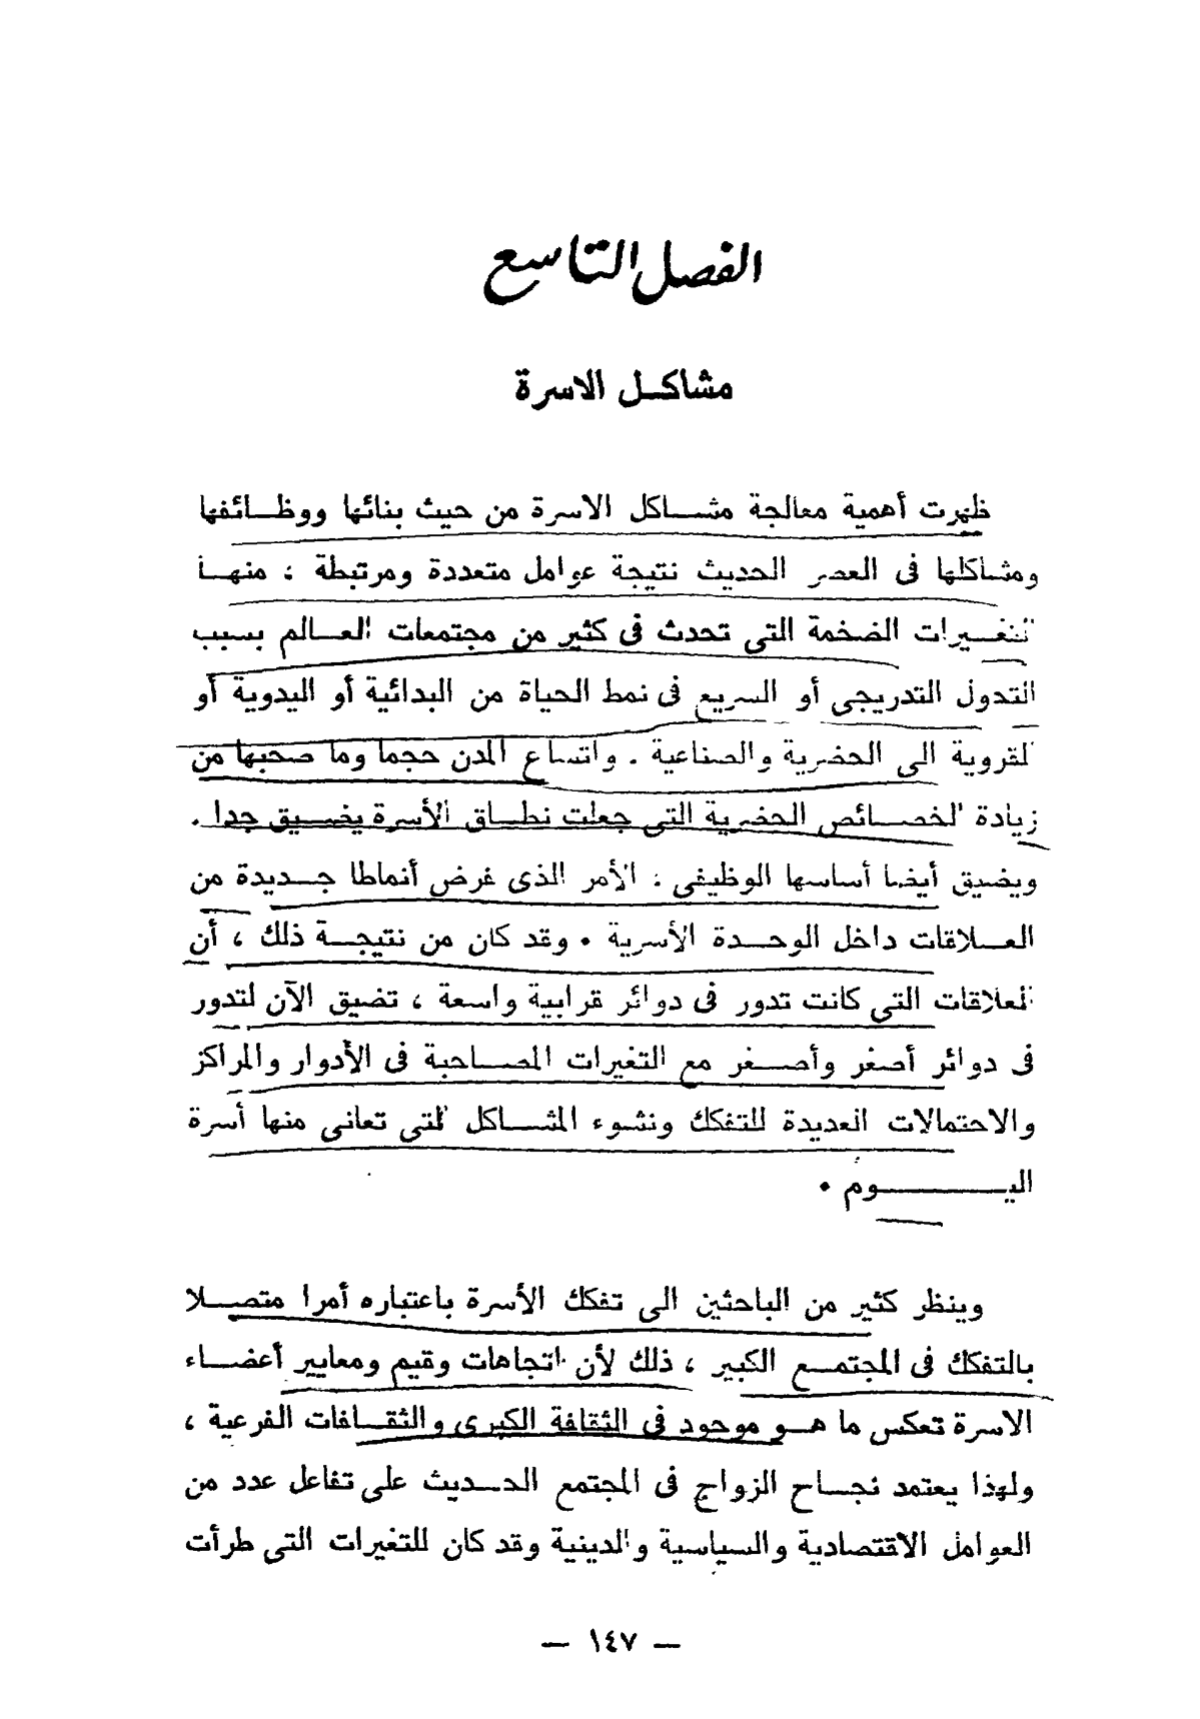 الفصل التاسع
مشاكل الاسرة
ظهرت أهمية معالجة مشاكل الاسرة من حيث بنائها ووظائفها
ومشاكلها فى العصر الحديث نتيجة عوامل متعددة ومرتبطة ؛ منها
التغيرات الضخمة التى تحدث فى كثير من مجتمعات العالم بسبب
التحول التدريجى أو السريع فى نمط الحياة من البدائية أو البدوية أو
القروية الى الحضرية والصناعية . واتساع المدن حجما وما صحبها من
زيادة الخصائص الحضرية التى جعلت نطاق الأسرة يضيق جدا .
ويضيق أيضا أساسها الوظيفى ؛ الأمر الذى فرض أنماطا جديدة من
العلاقات داخل الوحدة الأسرية . وقد كان من نتيجة ذلك ، أن
العلاقات التى كانت تدور فى دوائر قرابية واسعة ، تضيق الآن لتدور
فى دوائر أصغر وأصغر مع التغيرات المصاحبة فى الأدوار والمراكز
والاحتمالات العديدة للتفكك ونشوء المشاكل التى تعانى منها أسرة
اليوم .
وينظر كثير من الباحثين الى تفكك الأسرة باعتباره أمرا متصلا
بالتفكك فى المجتمع الكبير ، ذلك لأن اتجاهات وقيم ومعايير أعضاء
الاسرة تعكس ما هو موجود فى الثقافة الكبرى والثقافات الفرعية ،
ولهذا يعتمد نجاح الزواج فى المجتمع الحديث على تفاعل عدد من
العوامل الاقتصادية والسياسية والدينية وقد كان للتغيرات التى طرأت
— ١٤٧ —